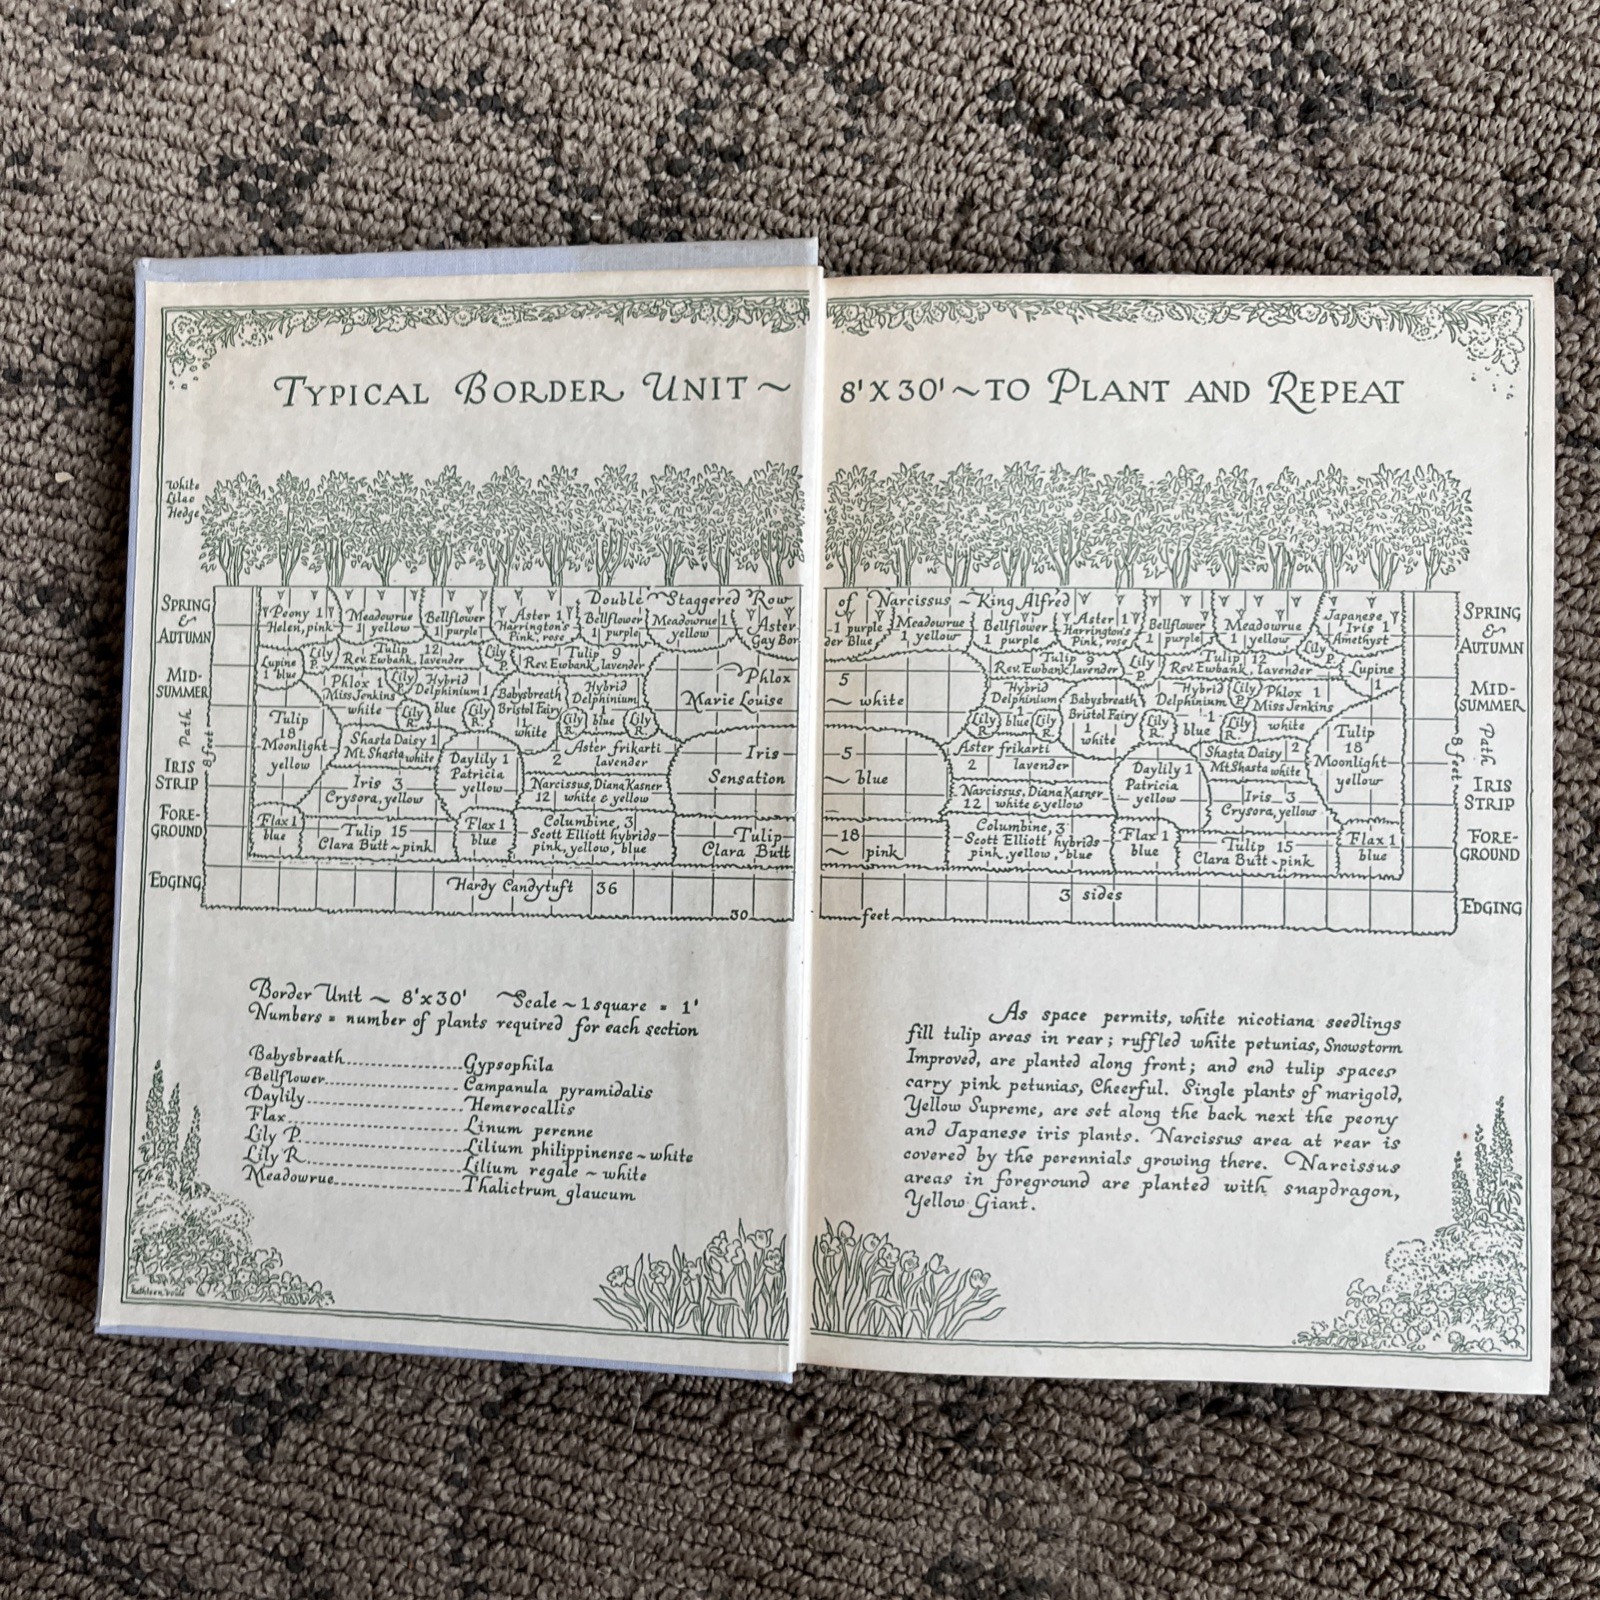 TYPICAL BORDER UNIT ~ 8' X 30' ~ TO PLANT AND REPEAT
White
Lilac
Hedge
SPRING
&
AUTUMN
MID-
SUMMER
Path
8 feet
IRIS
STRIP
FORE-
GROUND
EDGING
Double Staggered Row of Narcissus ~ King Alfred
Peony 1
Helen, pink
Meadowrue
1 yellow
Bellflower
1 purple
Aster 1
Harrington's
Pink, rose
Bellflower
1 purple
Meadowrue 1
yellow
Aster 1 purple
Gay Border Blue
Lupine
1 blue
Lily
P.
Tulip 12
Rev. Ewbank, lavender
Lily
P.
Tulip 9
Rev. Ewbank, lavender
Phlox 1
Miss Jenkins
white
Lily
P.
Hybrid
Delphinium 1
blue
Babysbreath
Bristol Fairy
1
white
Hybrid
Delphinium
1
blue
Lily
R.
Lily
R.
Lily
R.
Lily
R.
Phlox 5
Marie Louise ~ white
Tulip
18
Moonlight
yellow
Shasta Daisy 1
Mt. Shasta white
Daylily 1
Patricia
yellow
Aster frikarti
2 lavender
Iris 5
Sensation ~ blue
Iris 3
Crysora, yellow
Narcissus, Diana Kasner
12 white & yellow
Flax 1
blue
Tulip 15
Clara Butt ~ pink
Flax 1
blue
Columbine, 3
Scott Elliott hybrids
pink, yellow, blue
Tulip 18
Clara Butt ~ pink
Hardy Candytuft 36 3 sides
30 feet
Meadowrue
1 yellow
Bellflower
1 purple
Aster 1
Harrington's
Pink, rose
Bellflower
1 purple
Meadowrue
1 yellow
Japanese
Iris 1
Amethyst
Tulip 9
Rev. Ewbank, lavender
Lily
P.
Tulip 12
Rev. Ewbank, lavender
Lily
P.
Lupine
1
Hybrid
Delphinium
1
blue
Babysbreath
Bristol Fairy
1
white
Hybrid
Delphinium
1
blue
Lily
P.
Phlox 1
Miss Jenkins
white
Lily
R.
Lily
R.
Lily
R.
Lily
R.
Aster frikarti
2 lavender
Daylily 1
Patricia
yellow
Shasta Daisy 2
Mt Shasta white
Tulip
18
Moonlight
yellow
Narcissus, Diana Kasner
12 white & yellow
Iris 3
Crysora, yellow
Columbine, 3
Scott Elliott hybrids
pink, yellow, blue
Flax 1
blue
Tulip 15
Clara Butt ~ pink
Flax 1
blue
SPRING
&
AUTUMN
MID-
SUMMER
Path
8 feet
IRIS
STRIP
FORE-
GROUND
EDGING
Border Unit ~ 8'x30' Scale ~ 1 square = 1'
Numbers = number of plants required for each section
Babysbreath Gypsophila
Bellflower Campanula pyramidalis
Daylily Hemerocallis
Flax Linum perenne
Lily P. Lilium philippinense ~ white
Lily R Lilium regale ~ white
Meadowrue Thalictrum glaucum
As space permits, white nicotiana seedlings
fill tulip areas in rear; ruffled white petunias, Snowstorm
Improved, are planted along front; and end tulip spaces
carry pink petunias, Cheerful. Single plants of marigold,
Yellow Supreme, are set along the back next the peony
and Japanese iris plants. Narcissus area at rear is
covered by the perennials growing there. Narcissus
areas in foreground are planted with snapdragon,
Yellow Giant.